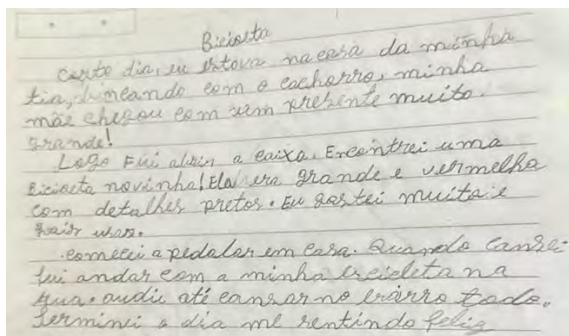 Bicicleta
Certo dia, eu estava na casa da minha
tia, brincando com o cachorro, minha
mãe chegou com um presente muito.
grande!
Logo Fui abrir a caixa. Encontrei uma
Bicicleta novinha! Ela era grande e vermelha
com detalhes pretos. Eu gostei muito e
usar.
comecei a pedalar em casa. Quando Cansei
fui andar com a minha bicicleta na
até cansar no bairro todo.
Terminei o dia me sentindo feliz